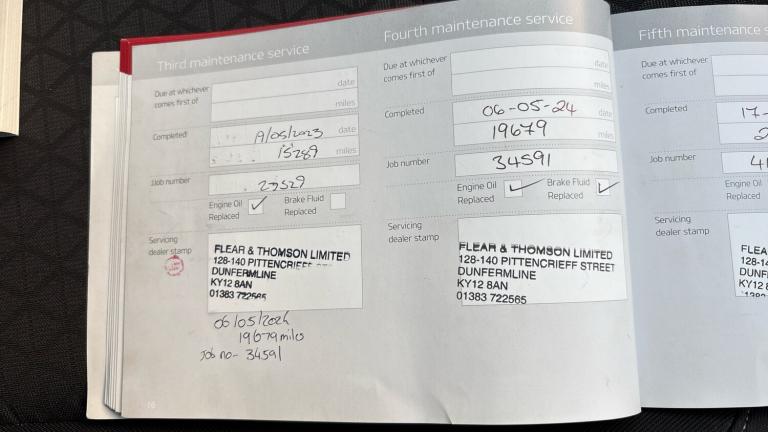 Third maintenance service
Due at whichever
comes first of
date
miles
Completed
19/05/2023 date
15289 miles
Job number
Engine Oil
Replaced
Brake Fluid
Replaced
Servicing
dealer stamp
FLEAR & THOMSON LIMITED
128-140 PITTENCRIEFF
DUNFERMLINE
KY12 8AN
01383 722565
06/05/2024
19679 miles
Job no- 34591
16
Fourth maintenance service
Due at whichever
comes first of
date
miles
Completed
06-05-24 date
19679 miles
Job number
34591
Engine Oil
Replaced
Brake Fluid
Replaced
Servicing
dealer stamp
FLEAR & THOMSON LIMITED
128-140 PITTENCRIEFF STREET
DUNFERMLINE
KY12 8AN
01383 722565
Fifth maintenance s
Due at whichever
comes first of
Completed
17-
2
Job number
41
Engine Oil
Replaced
Servicing
dealer stamp
FLEA
128-14
DUNF
KY12 8